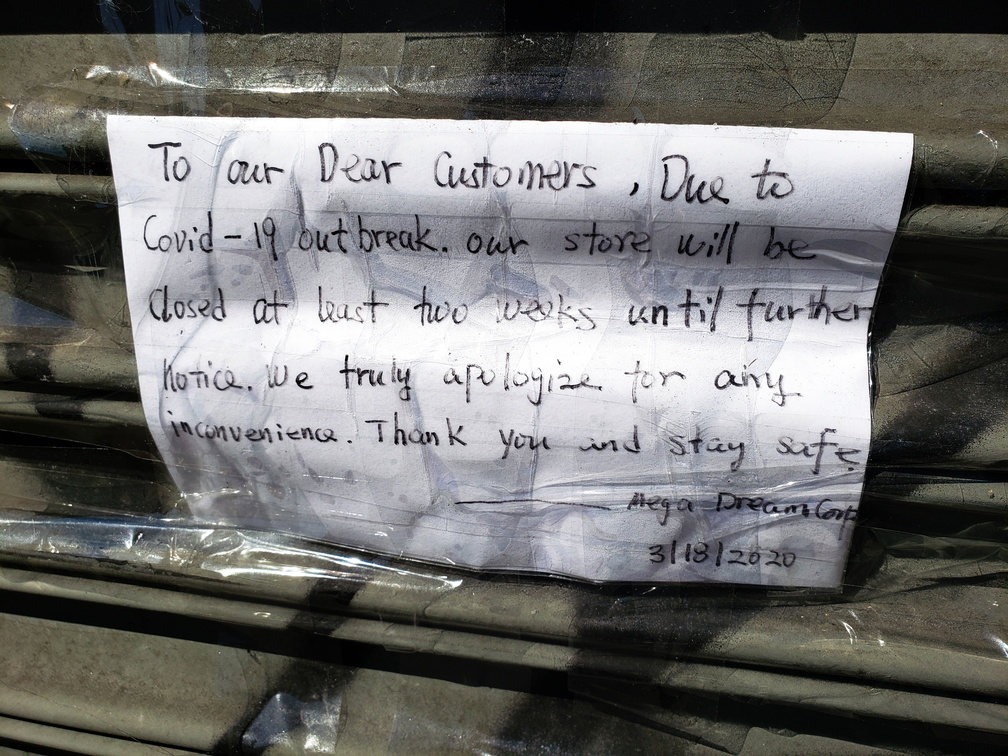 To our Dear Customers, Due to
Covid-19 outbreak. our store will be
Closed at least two weeks until further
notice. We truly apologize for any
inconvenience. Thank you and stay safe
— Mega Dream Corp
3/18/2020